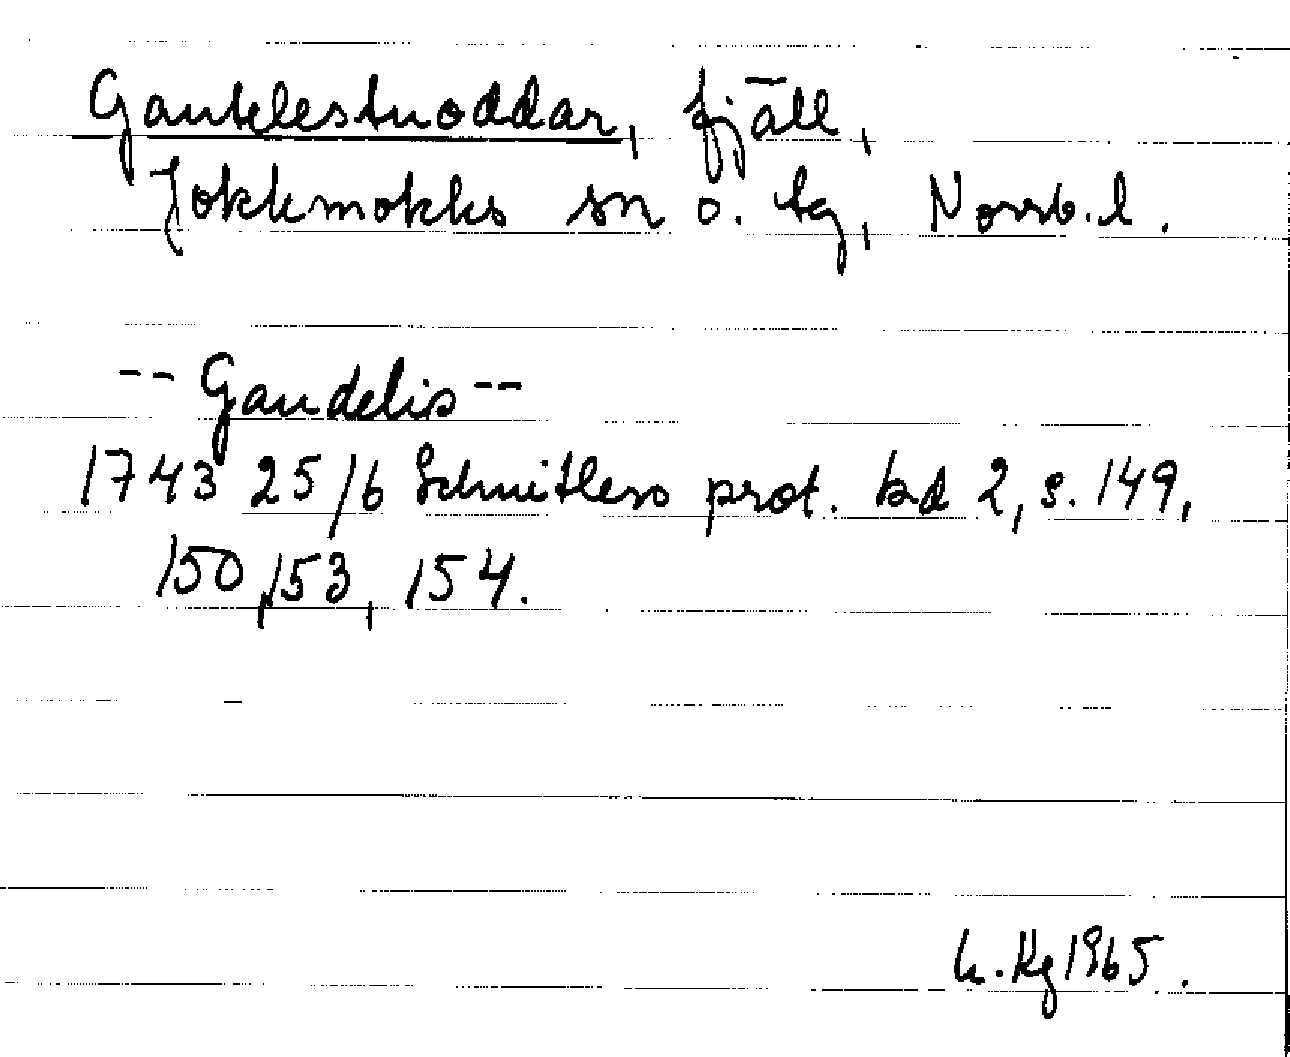 Gautelestuoddar, fjäll,
Jokkmokks sn o. tg, Norrb. l.
-- Gaudelis --
1743 25/6 Schnitlers prot. bd 2, s. 149,
150, 153, 154.
K. Hg 1965.